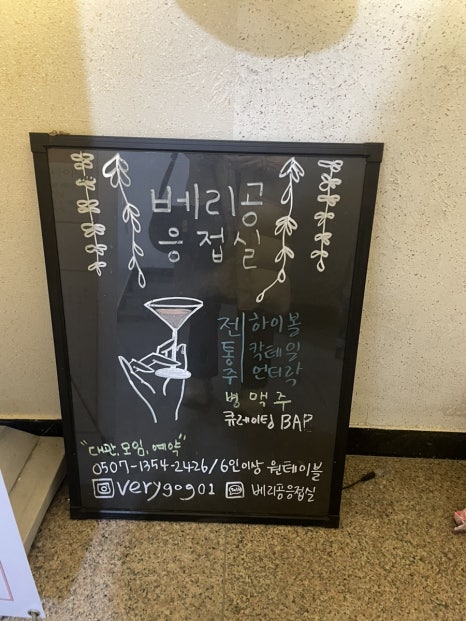 베리공
응접실
전통주
하이볼
칵테일
언더락
병맥주
큐레이팅 BAR
"대관, 모임, 예약"
0507-1354-2426/6인이상 원테이블
verygog01 베리공응접실